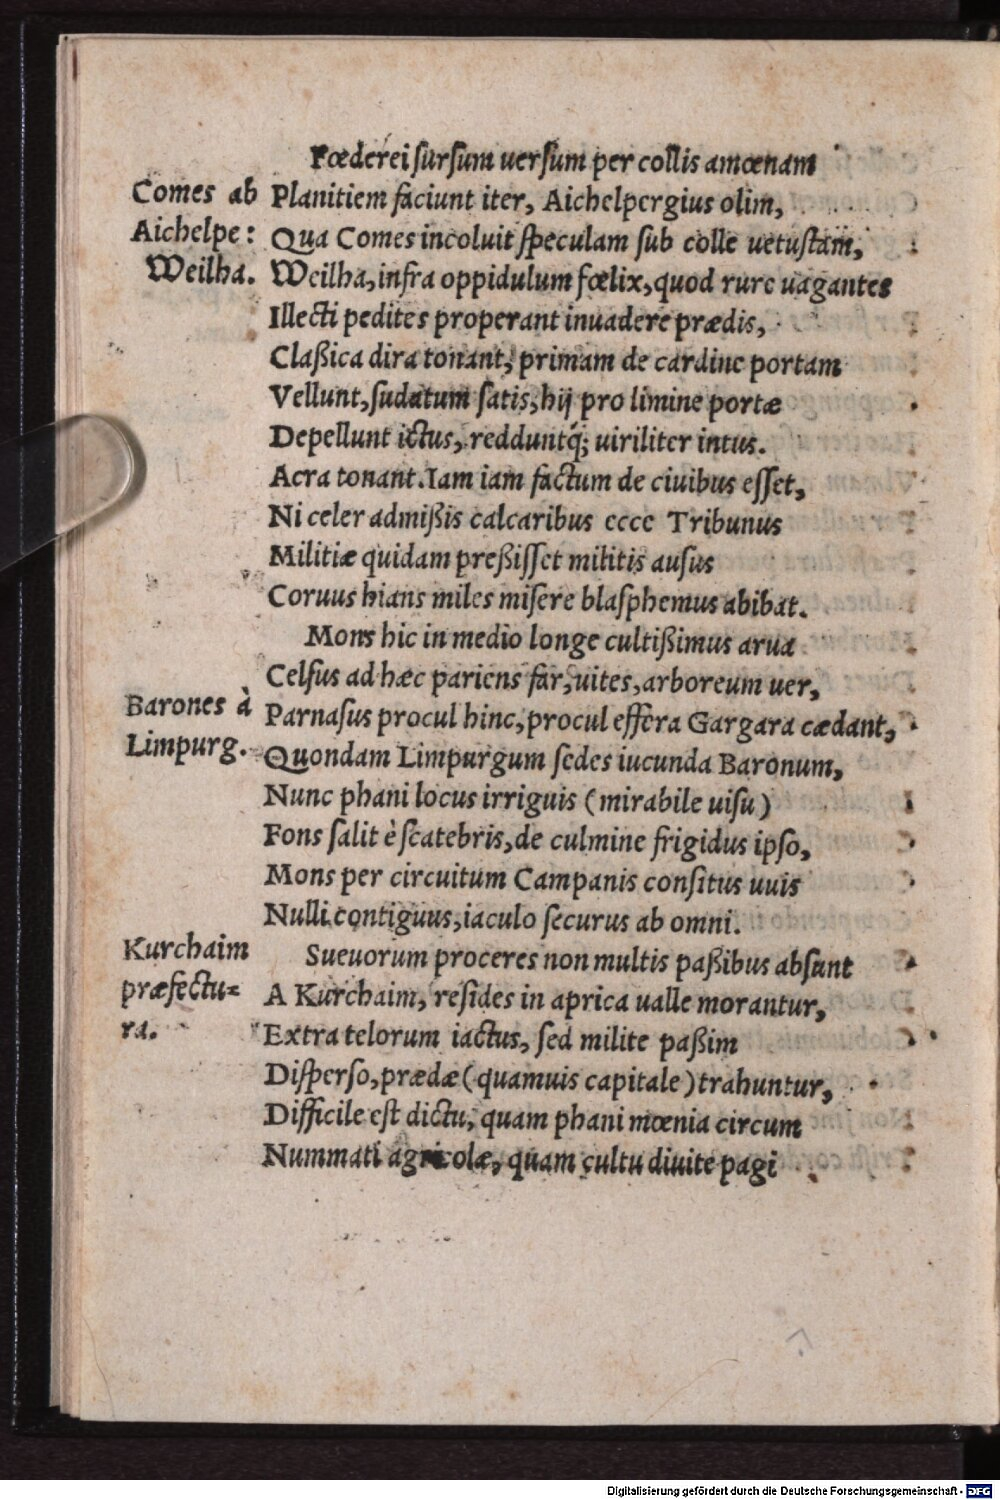 Fœderei sursum uersum per collis amœnam
Comes ab Planitiem faciunt iter, Aichelpergius olim,
Aichelpe: Qua Comes incoluit speculam sub colle uetustam,
Weilha. Weilha, infra oppidulum fœlix, quod rure uagantes
Illecti pedites properant inuadere prædis,
Claßica dira tonant, primam de cardine portam
Vellunt, sudatum satis, hij pro limine portæ
Depellunt ictus, redduntq́; uiriliter intus.
Aera tonant. Iam iam factum de ciuibus esset,
Ni celer admißis calcaribus cccc Tribunus
Militiæ quidam preßisset militis ausus
Coruus hians miles misere blasphemus abibat.
Mons hic in medio longe cultißimus arua
Celsus ad hæc pariens far, uites, arboreum uer,
Barones à Parnasus procul hinc, procul effera Gargara cædant,
Limpurg. Quondam Limpurgum sedes iucunda Baronum,
Nunc phani locus irriguis (mirabile uisu)
Fons salit è scatebris, de culmine frigidus ipso,
Mons per circuitum Campanis consitus uuis
Nulli contiguus, iaculo securus ab omni.
Kurchaim Sueuorum proceres non multis paßibus absunt
præfectu= A Kurchaim, resides in aprica ualle morantur,
ra. Extra telorum iactus, sed milite paßim
Disperso, prædæ (quamuis capitale) trahuntur,
Difficile est dictu, quam phani mœnia circum
Nummati agricolæ, quam cultu diuite pagi
Digitalisierung gefördert durch die Deutsche Forschungsgemeinschaft - DFG